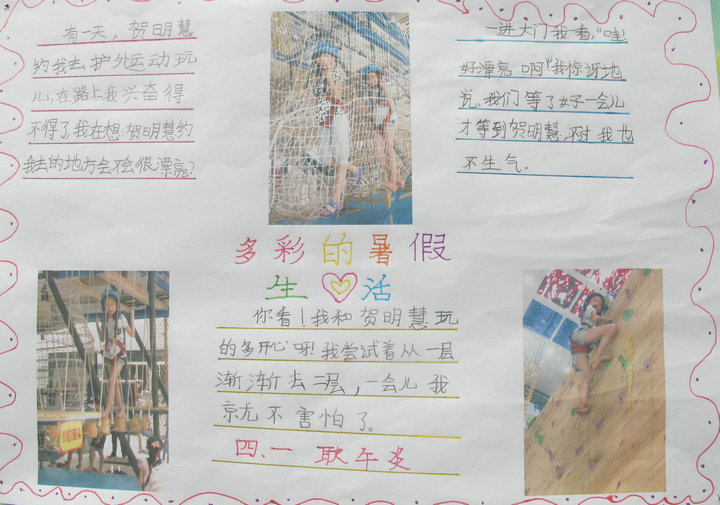 有一天，贺明慧
约我去护外运动玩
儿，在路上我兴奋得
不得了我在想：贺明慧约
我去的地方会不会很漂亮？
一进大门我看“哇！
好漂亮啊”我惊讶地
说。我们等了好一会儿
才等到贺明慧，不过我也
不生气。
多彩的暑假
生活
你看！我和贺明慧玩
的多开心呀！我尝试着从一层
渐渐去二层，一会儿我
就不害怕了。
四、一 耿午炎